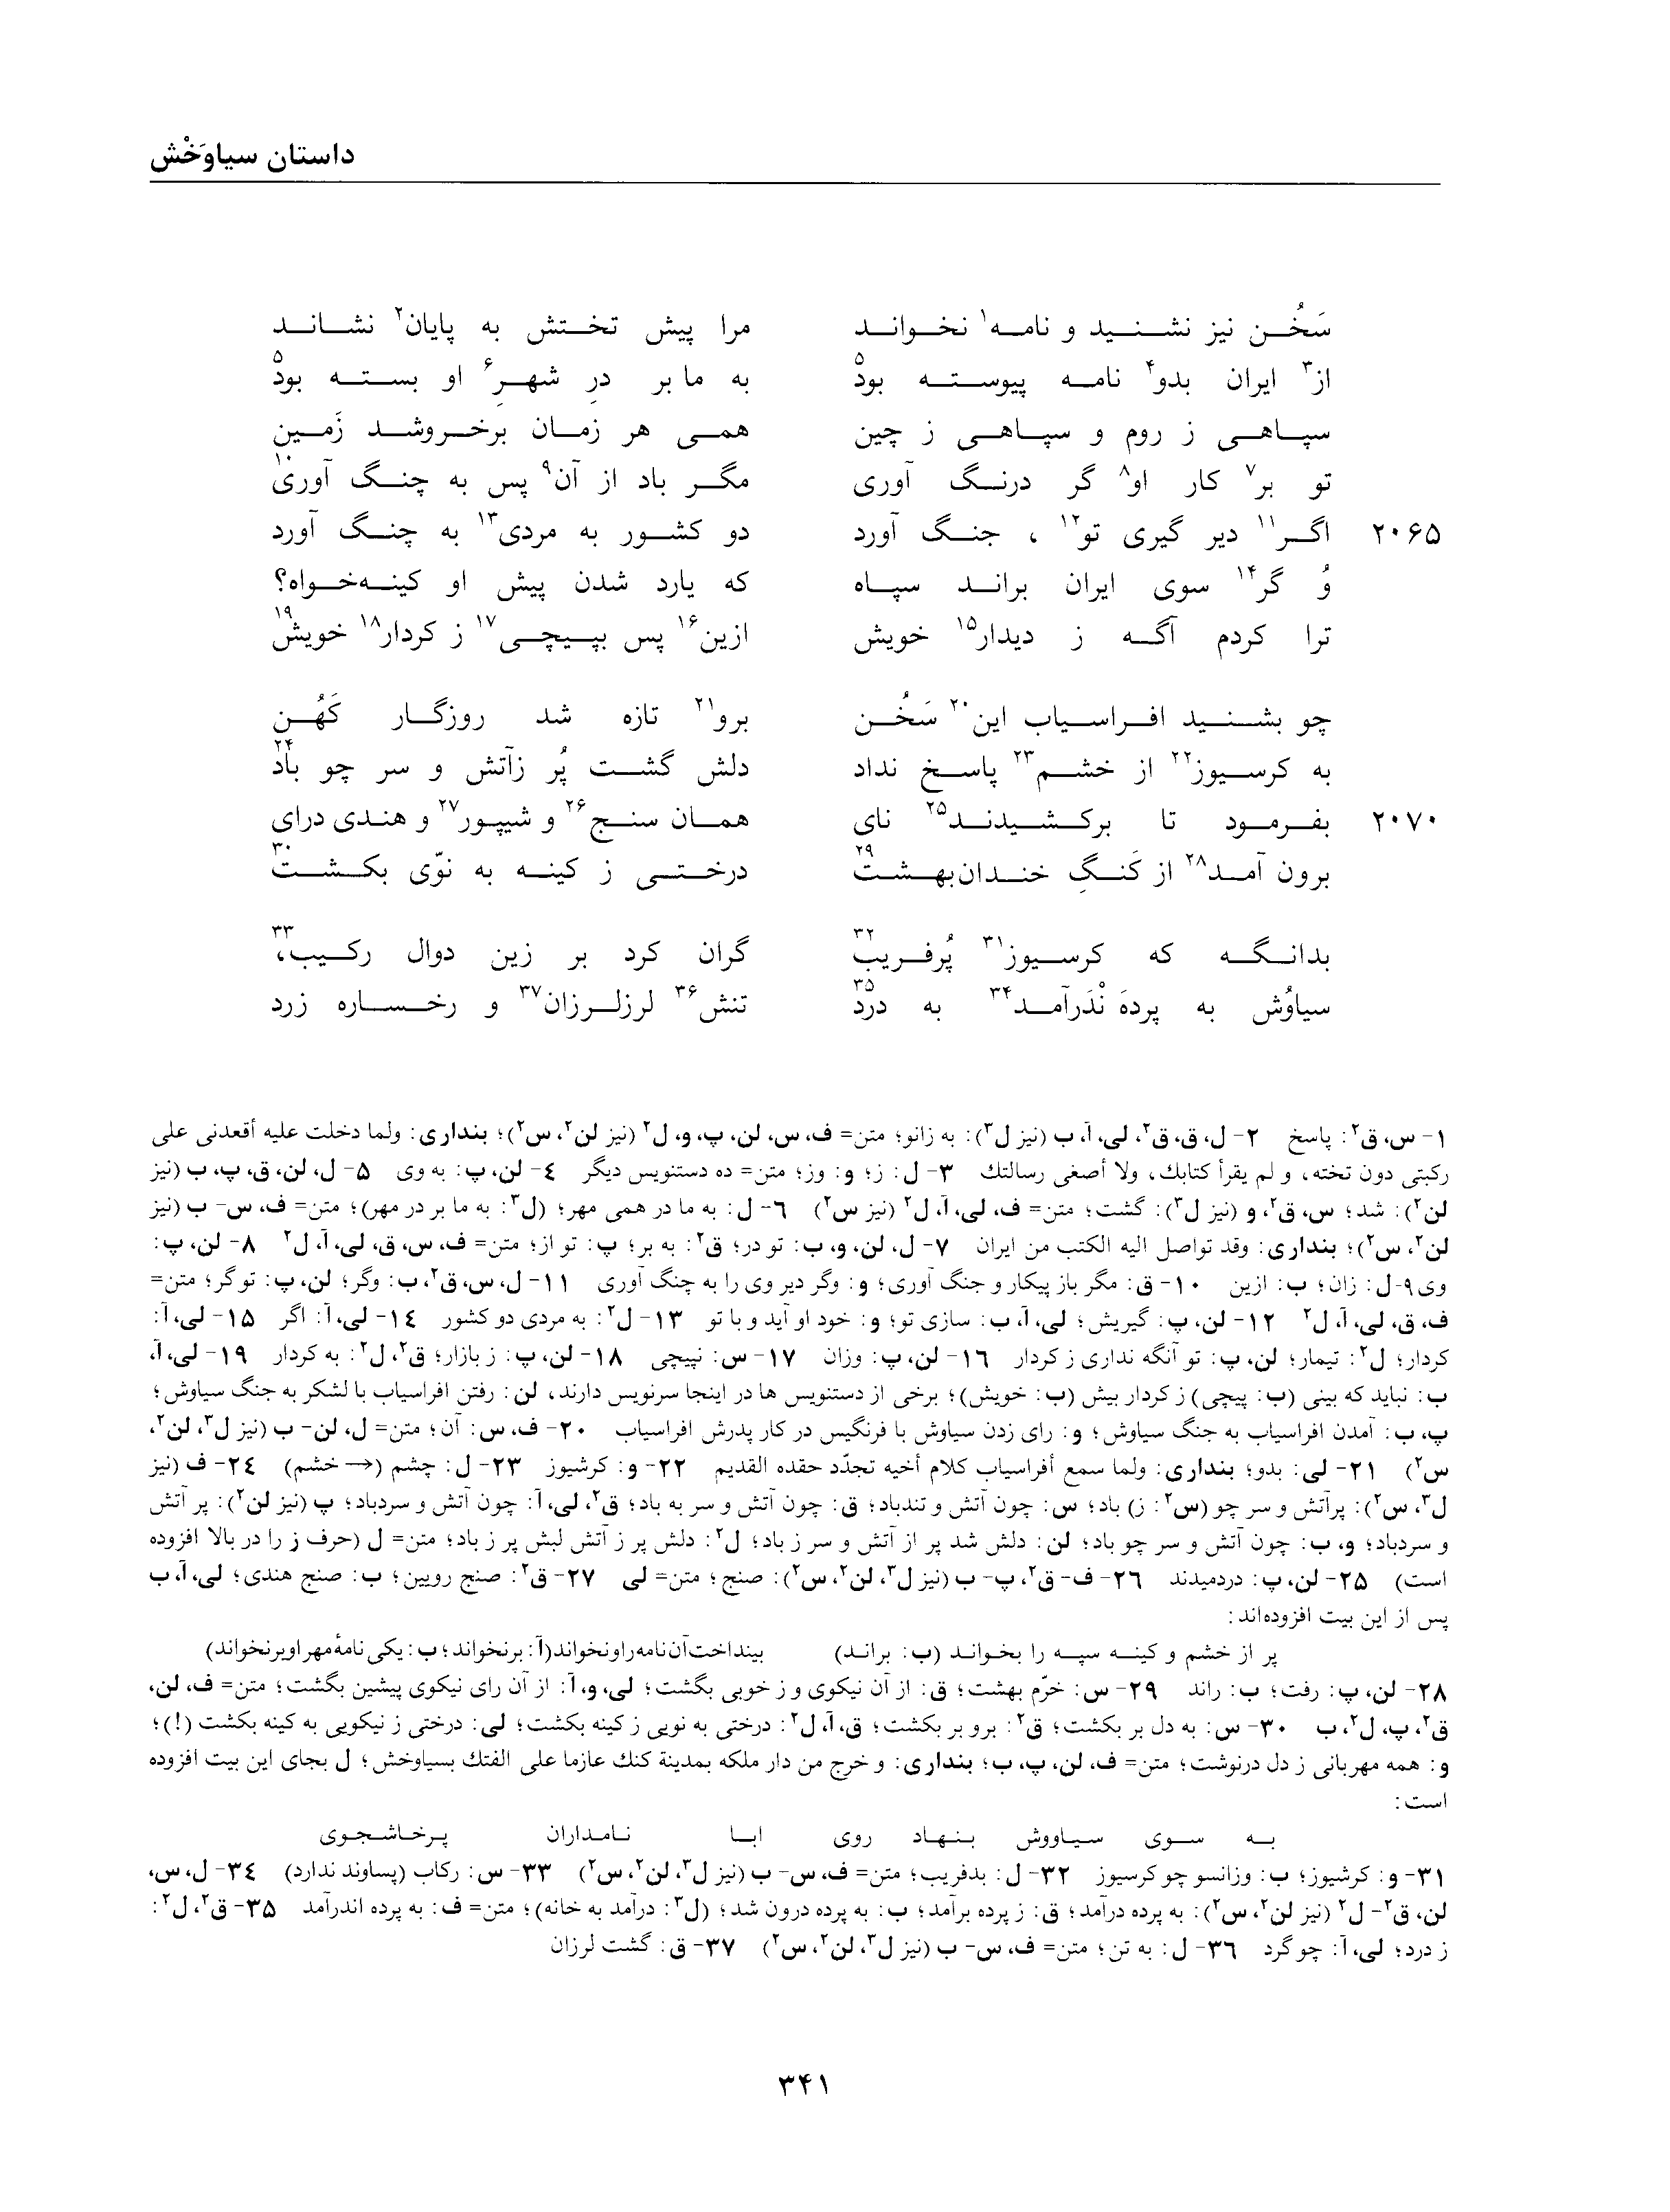 داستان سیاوَخْش
سَخُن نیز نشنید و نامه¹ نخواند مرا پیش تختش به پایان² نشاند
از³ ایران بدو⁴ نامه پیوسته بود⁵ به ما بر درِ شهرِ⁶ او بسته بود⁵
سپاهی ز روم و سپاهی ز چین همی هر زمان برخروشد زَمین
تو بر⁷ کار او⁸ گر درنگ آوری مگر باد از آن⁹ پس به چنگ آوری¹⁰
۲۰۶۵ اگر¹¹ دیر گیری تو¹²، جنگ آورد دو کشور به مردی¹³ به چنگ آورد
وُ گر¹⁴ سوی ایران براند سپاه که یارد شدن پیش او کینه‌خواه؟
ترا کردم آگه ز دیدار¹⁵ خویش ازین¹⁶ پس بپیچی¹⁷ ز کردار¹⁸ خویش¹⁹
چو بشنید افراسیاب این²⁰ سَخُن برو²¹ تازه شد روزگار کَهُن
به کرسیوز²² از خشم²³ پاسخ نداد دلش گشت پُر زآتش و سر چو باد²⁴
۲۰۷۰ بفرمود تا برکشیدند²⁵ نای همان سنج²⁶ و شیپور²⁷ و هندی درای
برون آمد²⁸ از کَنگِ خندان‌بهشت²⁹ درختی ز کینه به نوّی بکشت³⁰
بدانگه که کرسیوز³¹ پُرفریب³² گران کرد بر زین دوال رکیب،³³
سیاوُش به پرده نْدَرآمد³⁴ به درد³⁵ تنش³⁶ لرزلرزان³⁷ و رخساره زرد
۱- س، ق²: پاسخ ۲- ل، ق، ق²، لی، آ، ب (نیز ل³): به زانو؛ متن= ف، س، لن، پ، و، ل² (نیز لن²، س²)؛ بنداری: ولما دخلت علیه أقعدنی علی
رکبتی دون تخته، و لم یقرأ کتابك، ولا أصغی رسالتك ۳- ل: ز؛ و: وز؛ متن= ده دستنویس دیگر ٤- لن، پ: به وی ۵- ل، لن، ق، پ، ب (نیز
لن²): شد؛ س، ق²، و (نیز ل³): گشت؛ متن= ف، لی، آ، ل² (نیز س²) ٦- ل: به ما در همی مهر؛ (ل³: به ما بر در مهر)؛ متن= ف، س- ب (نیز
لن²، س²)؛ بنداری: وقد تواصل الیه الکتب من ایران ۷- ل، لن، و، ب: تو در؛ ق²: به بر؛ پ: تو از؛ متن= ف، س، ق، لی، آ، ل² ۸- لن، پ:
وی ۹-ل: زان؛ ب: ازین ۱۰- ق: مگر باز پیکار و جنگ آوری؛ و: وگر دیر وی را به چنگ آوری ۱۱- ل، س، ق²، ب: وگر؛ لن، پ: تو گر؛ متن=
ف، ق، لی، آ، ل² ۱۲- لن، پ: گیریش؛ لی، آ، ب: سازی تو؛ و: خود او آید و با تو ۱۳- ل²: به مردی دو کشور ۱٤- لی، آ: اگر ۱۵- لی، آ:
کردار؛ ل²: تیمار؛ لن، پ: تو آنگه نداری ز کردار ۱٦- لن، پ: وزان ۱۷- س: نپیچی ۱۸- لن، پ: ز بازار؛ ق²، ل²: به کردار ۱۹- لی، آ،
ب: نباید که بینی (ب: پیچی) ز کردار بیش (ب: خویش)؛ برخی از دستنویس ها در اینجا سرنویس دارند، لن: رفتن افراسیاب با لشکر به جنگ سیاوش؛
پ، ب: آمدن افراسیاب به جنگ سیاوش؛ و: رای زدن سیاوش با فرنگیس در کار پدرش افراسیاب ۲۰- ف، س: آن؛ متن= ل، لن- ب (نیز ل³، لن²،
س²) ۲۱- لی: بدو؛ بنداری: ولما سمع أفراسیاب کلام أخیه تجدّد حقده القدیم ۲۲- و: کرشیوز ۲۳- ل: چشم (→ خشم) ۲٤- ف (نیز
ل³، س²): پرآتش و سر چو (س²: ز) باد؛ س: چون آتش و تندباد؛ ق: چون آتش و سر به باد؛ ق²، لی، آ: چون آتش و سردباد؛ پ (نیز لن²): پر آتش
و سردباد؛ و، ب: چون آتش و سر چو باد؛ لن: دلش شد پر از آتش و سر ز باد؛ ل²: دلش پر ز آتش لبش پر ز باد؛ متن= ل (حرف ز را در بالا افزوده
است) ۲۵- لن، پ: دردمیدند ۲٦- ف- ق²، پ- ب (نیز ل³، لن²، س²): صنج؛ متن= لی ۲۷- ق²: صنج رویین؛ ب: صنج هندی؛ لی، آ، ب
پس از این بیت افزوده‌اند:
پر از خشم و کینه سپه را بخواند (ب: براند) بینداخت آن نامه را و نخواند(آ: برنخواند؛ ب: یکی نامهٔ مهر او برنخواند)
۲۸- لن، پ: رفت؛ ب: راند ۲۹- س: خرّم بهشت؛ ق: از آن نیکوی و ز خوبی بگشت؛ لی، و، آ: از آن رای نیکوی پیشین بگشت؛ متن= ف، لن،
ق²، پ، ل²، ب ۳۰- س: به دل بر بکشت؛ ق²: برو بر بکشت؛ ق، آ، ل²: درختی به نویی ز کینه بکشت؛ لی: درختی ز نیکویی به کینه بکشت (!)؛
و: همه مهربانی ز دل درنوشت؛ متن= ف، لن، پ، ب؛ بنداری: و خرج من دار ملکه بمدینة کنك عازما علی الفتك بسیاوخش؛ ل بجای این بیت افزوده
است:
به سوی سیاووش بنهاد روی ابا نامداران پرخاشجوی
۳۱- و: کرشیوز؛ ب: وزانسو چو کرسیوز ۳۲- ل: بدفریب؛ متن= ف، س- ب (نیز ل³، لن²، س²) ۳۳- س: رکاب (پساوند ندارد) ۳٤- ل، س،
لن، ق²- ل² (نیز لن²، س²): به پرده درآمد؛ ق: ز پرده برآمد؛ ب: به پرده درون شد؛ (ل³: درآمد به خانه)؛ متن= ف: به پرده اندرآمد ۳۵- ق²، ل²:
ز درد؛ لی، آ: چو گرد ۳٦- ل: به تن؛ متن= ف، س- ب (نیز ل³، لن²، س²) ۳۷- ق: گشت لرزان
۳۴۱